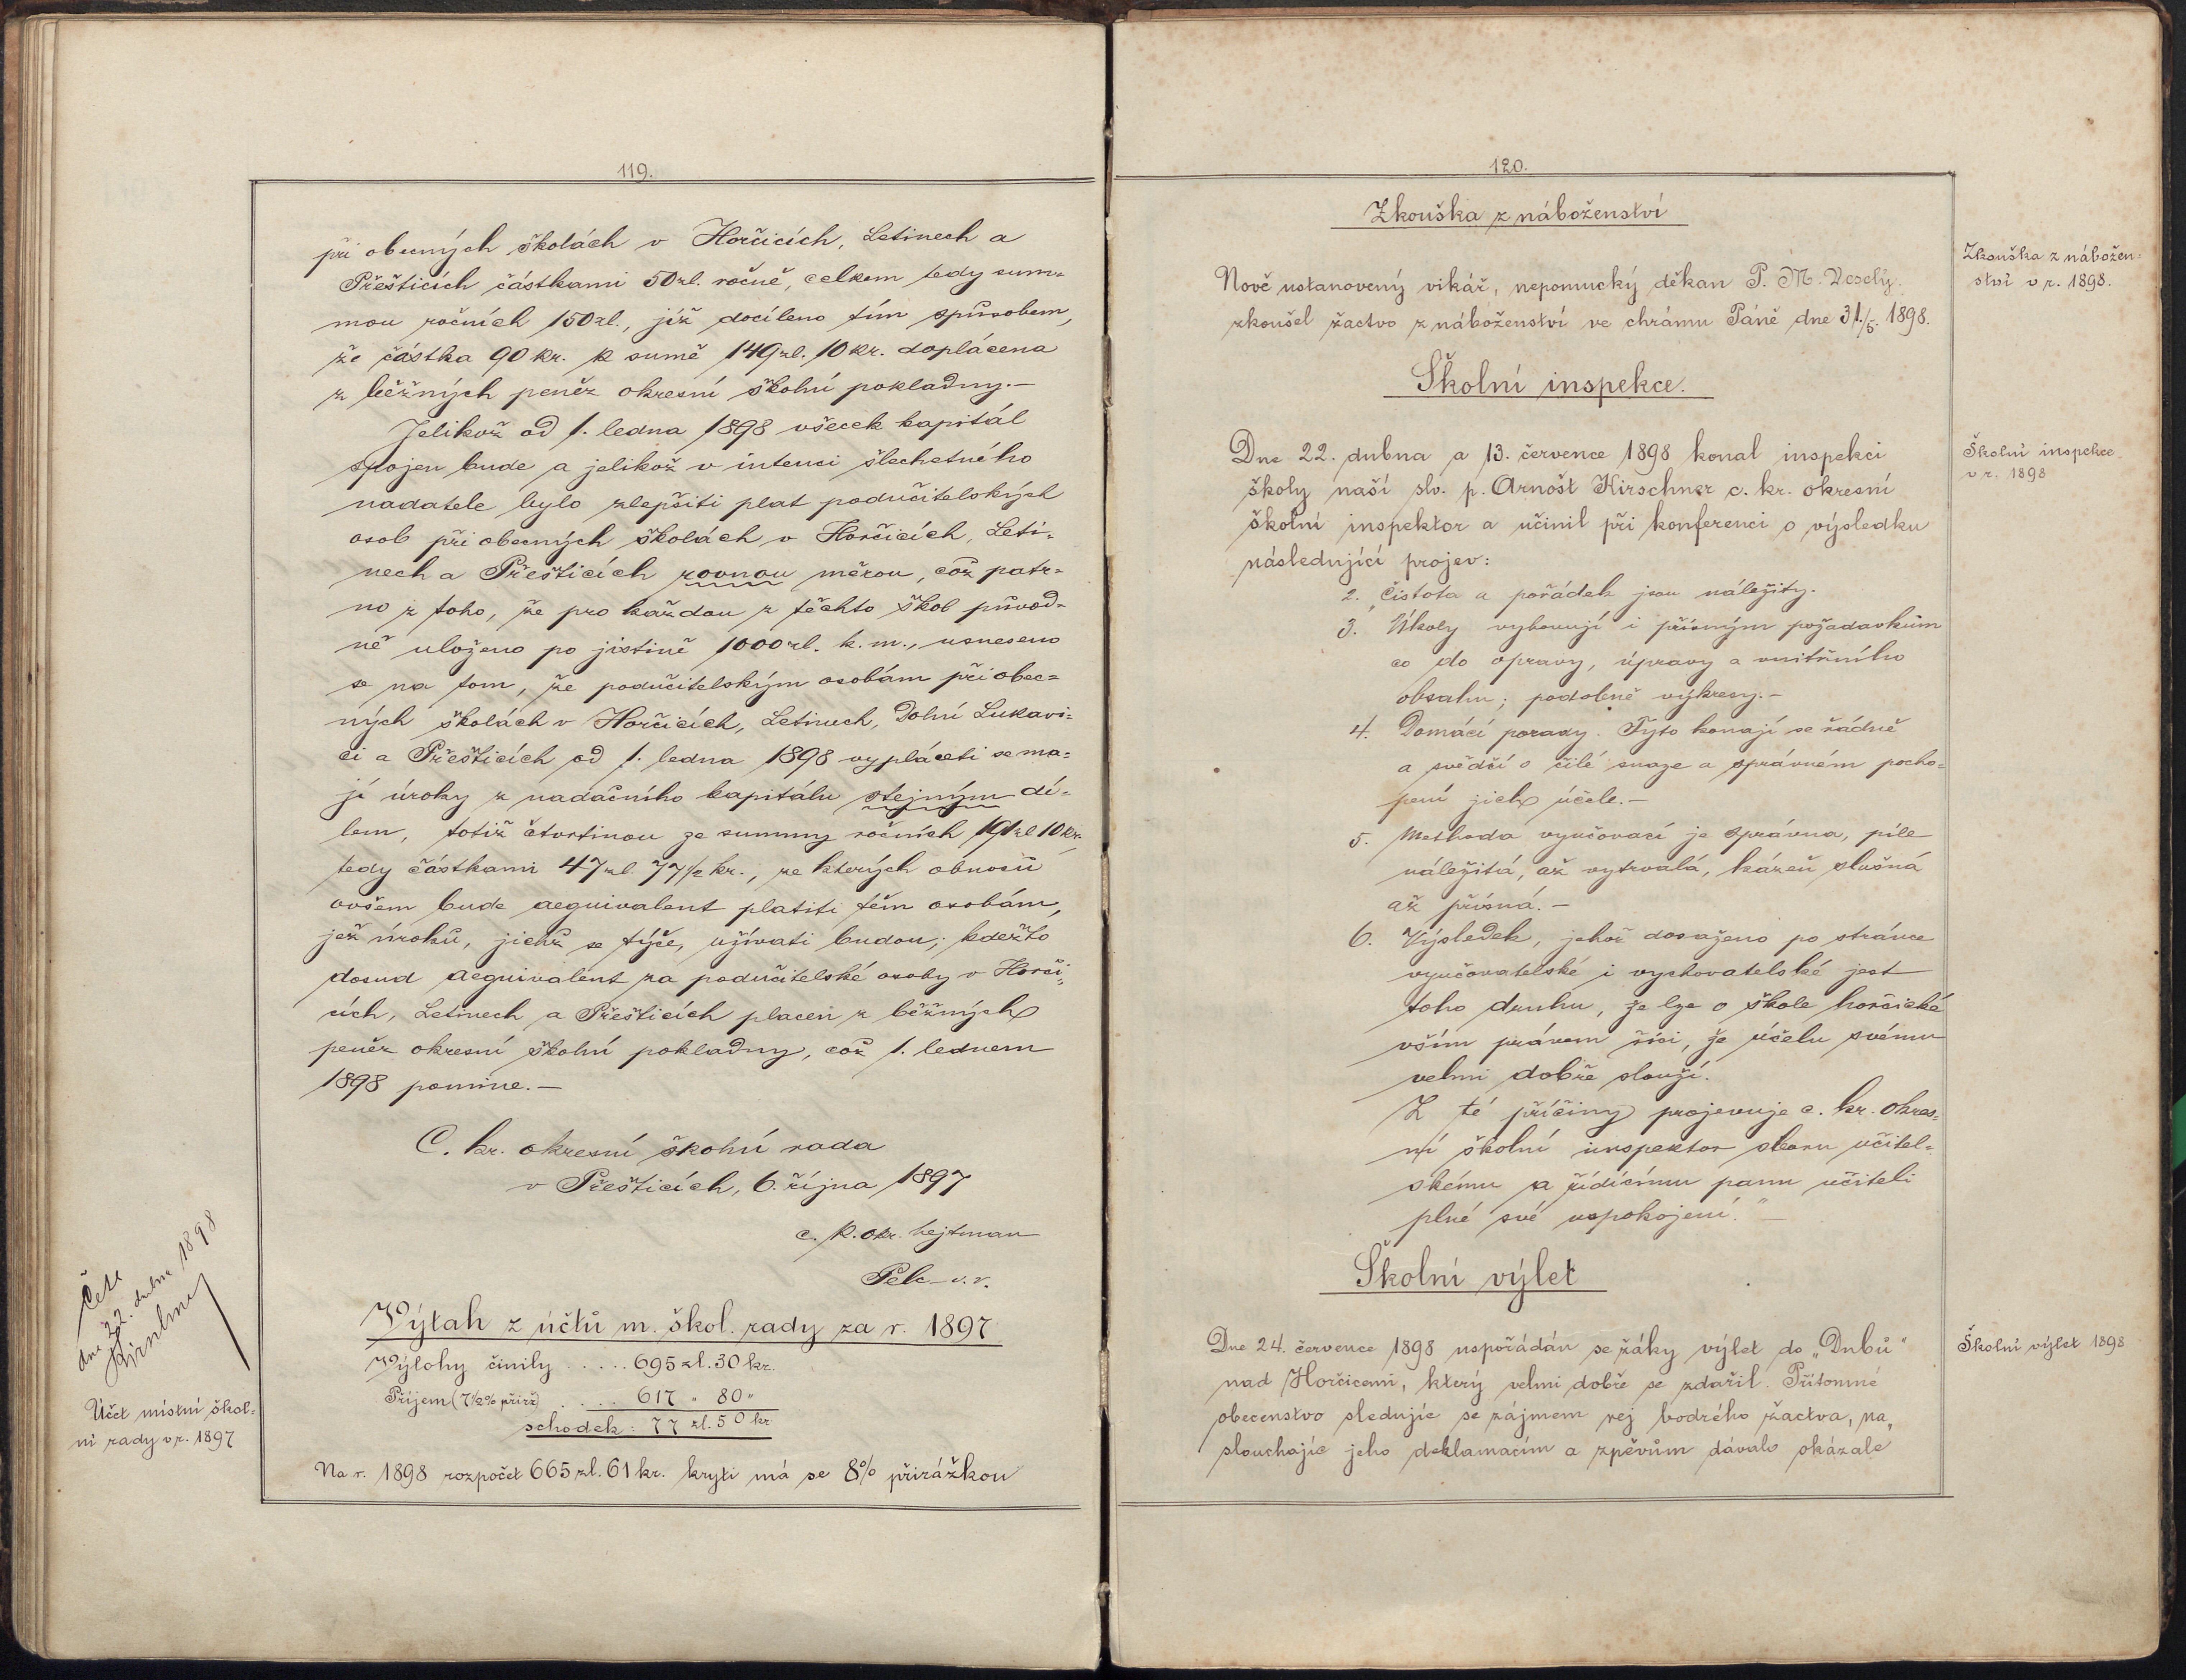 119.
při obecných školách v Horčicích, Letinech a
Přešticích částkami 50 zl. ročně, celkem tedy sum=
mou ročních 150 zl., jíž docíleno tím spůsobem,
že částka 90 kr. k sumě 149 zl. 10 kr. doplácena
z běžných peněz okresní školní pokladny.—
Jelikož od 1. ledna 1898 všecek kapitál
spojen bude a jelikož v intenci šlechetného
nadatele bylo zlepšiti plat podučitelských
osob při obecných školách v Horčicích, Leti=
nech a Přešticích rovnou měrou, což patr=
no z toho, že pro každou z těchto škol původ=
ně uloženo po jistině 1000 zl. k. m., usneseno
se na tom, že podučitelským osobám při obec=
ných školách v Horčicích, Letinech, Dolní Lukavi=
ci a Přešticích od 1. ledna 1898 vypláceti se ma=
jí úroky z nadačního kapitálu stejným dí=
lem, totiž čtvrtinou ze summy ročních 191 zl 10 kr.
tedy částkami 47 zl. 77½ kr., ze kterých obnosů
ovšem bude aequivalent platiti těm osobám,
jež úroků, jichž se týče, užívati budou; kdežto
dosud aequivalent za podučitelské osoby v Horči=
cích, Letinech a Přešticích placen z běžných
peněz okresní školní pokladny, což 1. lednem
1898 pomine.—
C. kr. okresní školní rada
v Přešticích, 6. října 1897
c. k. okr. hejtman
Pelc v. r.
Četl
dne 22. dubna 1898
Výtah z účtů m. škol. rady za r. 1897
Výlohy činily ..... 695 zl. 30 kr.
Příjem (7½% přirž) .... 617 " 80 "
schodek: 77 zl. 50 kr
Účet místní škol=
ní rady v r. 1897
Na r. 1898 rozpočet 665 zl. 61 kr. kryti má se 8% přirážkou
120.
Zkouška z náboženství
Zkouška z nábožen=
ství v r. 1898.
Nově ustanovený vikář, nepomucký děkan P. M. Veselý
zkoušel žactvo z náboženství ve chrámu Páně dne 31./5. 1898.
Školní inspekce.
Školní inspekce
v r. 1898
Dne 22. dubna a 13. července 1898 konal inspekci
školy naší slv. p. Arnošt Kirschner c. kr. okresní
školní inspektor a učinil při konferenci o výsledku
následující projev:
2. „Čistota a pořádek jsou náležity.
3. Úkoly vyhovují i přísným požadavkům
co do opravy, úpravy a vnitřního
obsahu; podobně výkresy.—
4. Domácí porady. Tyto konají se řádně
a svědčí o čilé snaze a správném pocho=
pení jich účele.—
5. Methoda vyučovací je správna, píle
náležitá, až vytrvalá, kázeň slušná
až přísná.—
6. Výsledek, jehož dosaženo po stránce
vyučovatelské i vychovatelské jest
toho druhu, že lze o škole horčické
vším právem říci, že účelu svému
velmi dobře slouží.
Z té příčiny projevuje c. kr. okres=
ní školní inspektor sboru učitel=
skému a řídícímu panu učiteli
plné své uspokojení.“—
Školní výlet
Školní výlet 1898
Dne 24. července 1898 uspořádán se žáky výlet do „Dubů“
nad Horčicemi, který velmi dobře se zdařil. Přítomné
obecenstvo sledujíc se zájmem rej bodrého žactva, na„
slouchajíc jeho deklamacím a zpěvům dávalo okázale